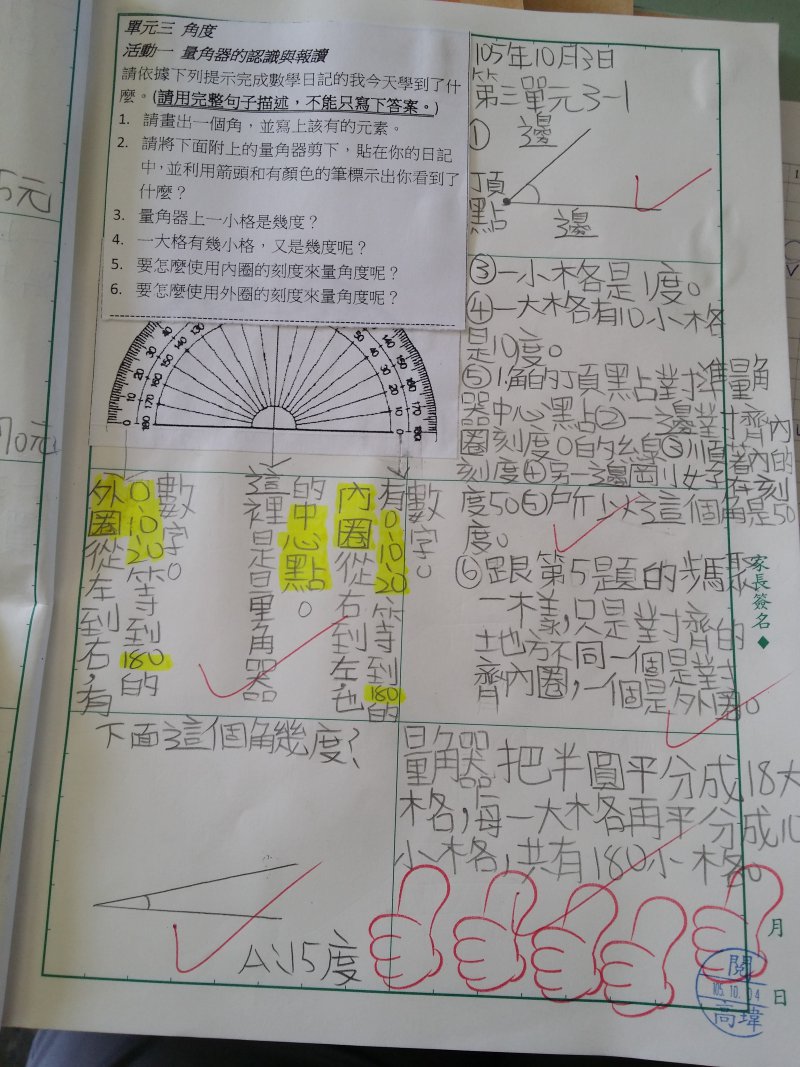 單元三 角度
活動一 量角器的認識與報讀
請依據下列提示完成數學日記的我今天學到了什
麼。(請用完整句子描述，不能只寫下答案。)
1. 請畫出一個角，並寫上該有的元素。
2. 請將下面附上的量角器剪下，貼在你的日記
中，並利用箭頭和有顏色的筆標示出你看到了
什麼？
3. 量角器上一小格是幾度？
4. 一大格有幾小格，又是幾度呢？
5. 要怎麼使用內圈的刻度來量角度呢？
6. 要怎麼使用外圈的刻度來量角度呢？
105年10月3日
第三單元3-1
① 邊
頂點
邊
③一小格是1度。
④一大格有10小格
是10度。
⑤1.角的頂點對準量角
器中心點②一邊對齊內
圈刻度0的線③順著內的
刻度④另一邊剛好在刻
度50⑤所以這個角是50
度。
⑥跟第5題的
一樣，只是對齊的
地方不同一個是對
齊內圈，一個是外圈。
外圈從左到右，有
0.10.20等到180的
數字。
這裡是量角器
的中心點。
內圈從右到左，也
有0.10.20等到180的
數字。
下面這個角幾度？
A:15度
量角器把半圓平分成18大
格，每一大格再平分成10
小格，共有180小格。
家長簽名◆
月
日
閱
105.10.04
高瑋